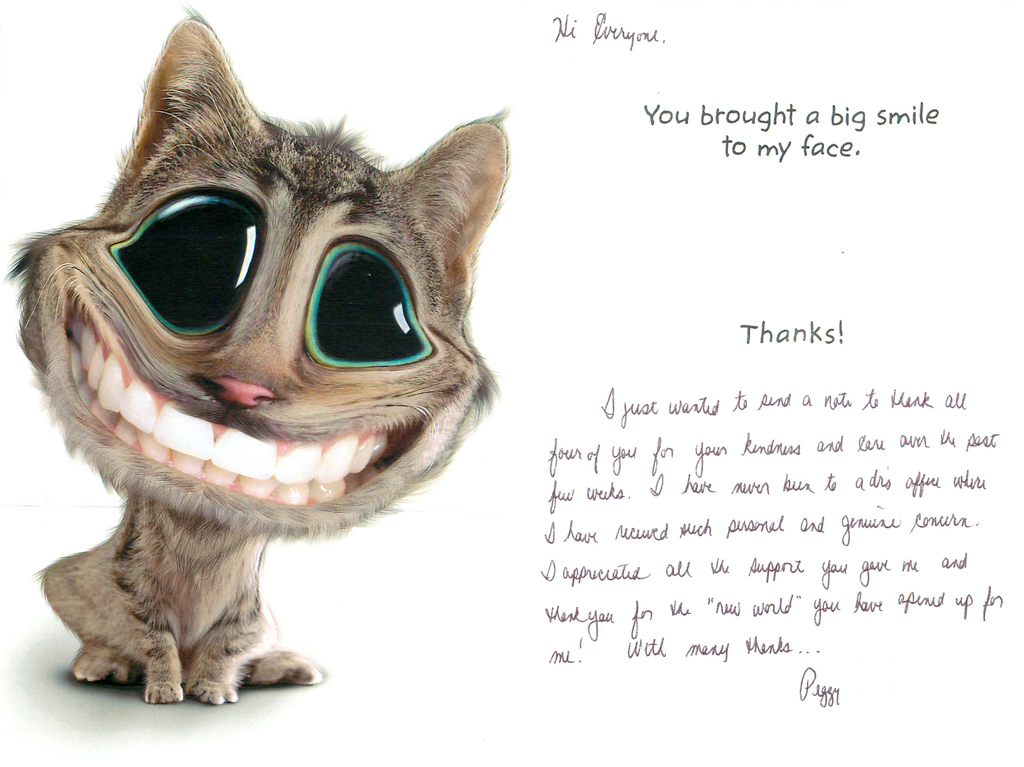 Hi Everyone,
You brought a big smile
to my face.
Thanks!
I just wanted to send a note to thank all
four of you for your kindness and care over the past
few weeks. I have never been to a drs office where
I have received such personal and genuine concern.
I appreciated all the support you gave me and
thank you for the "new world" you have opened up for
me! With many thanks...
Peggy